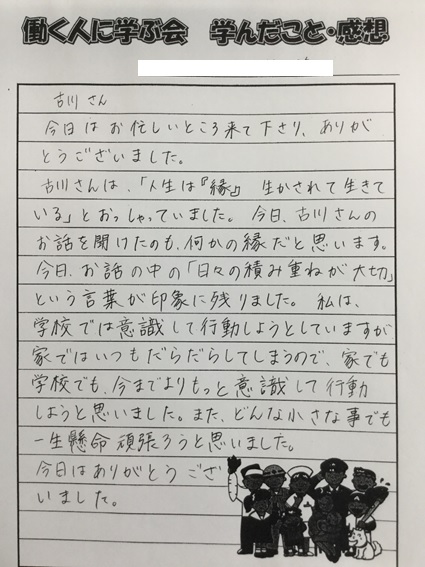 働く人に学ぶ会　学んだこと・感想
古川さん
今日はお忙しいところ来て下さり、ありが
とうございました。
古川さんは、「人生は『縁』　生かされて生きて
いる」とおっしゃっていました。今日、古川さんの
お話を聞けたのも、何かの縁だと思います。
今日、お話の中の「日々の積み重ねが大切」
という言葉が印象に残りました。私は、
学校では意識して行動しようとしていますが
家ではいつもだらだらしてしまうので、家でも
学校でも、今までよりもっと意識して行動
しようと思いました。また、どんな小さな事でも
一生懸命頑張ろうと思いました。
今日はありがとうござ
いました。